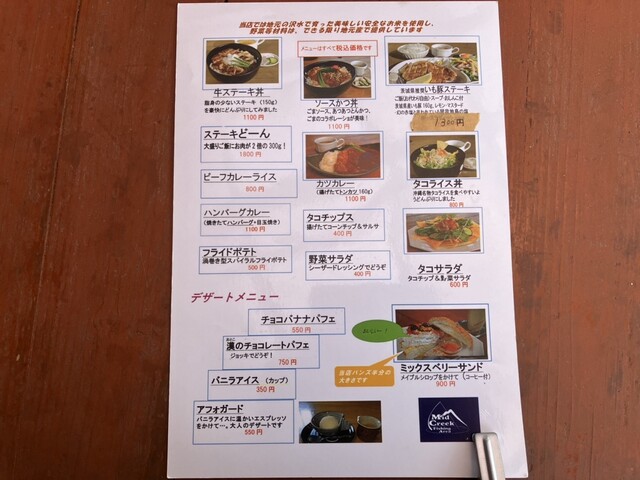 当店では地元の沢水で育った美味しい安全なお米を使用し、
野菜等材料は、できる限り地元産で提供しています
メニューはすべて税込価格です
牛ステーキ丼
脂身の少ないステーキ（150g）
を豪快にどんぶりにしてみました
1100 円
ソースかつ丼
ごまソース、あつあつとんかつ、
ごまのコラボレーションが美味！
1100 円
茨城県推奨いも豚ステーキ
ご飯（お代わり自由）・スープ・おしんこ付
茨城県産いも豚 160g、レモン・マスタード
1300円
ステーキどーん
大盛りご飯にお肉が 2 倍の 300g！
1800 円
ビーフカレーライス
800 円
カツカレー
（揚げたてトンカツ 160g）
1100 円
タコライス丼
沖縄名物タコライスを食べやすいよ
うどんぶりにしました
800 円
ハンバーグカレー
（焼きたてハンバーグ・目玉焼き）
1100 円
タコチップス
揚げたてコーンチップ＆サルサ
400 円
フライドポテト
渦巻き型スパイラルフライポテト
500 円
野菜サラダ
シーザードレッシングでどうぞ
400 円
タコサラダ
タコチップ＆野菜サラダ
600 円
デザートメニュー
チョコバナナパフェ
550 円
おとこ
漢のチョコレートパフェ
ジョッキでどうぞ！
750 円
おいしー！
当店バンズ半分の
大きさです
ミックスベリーサンド
メイプルシロップをかけて （コーヒー付）
900 円
バニラアイス （カップ）
350 円
アフォガード
バニラアイスに温かいエスプレッソ
をかけて…。大人のデザートです
550 円
Mad
Creek
Fishing
Area